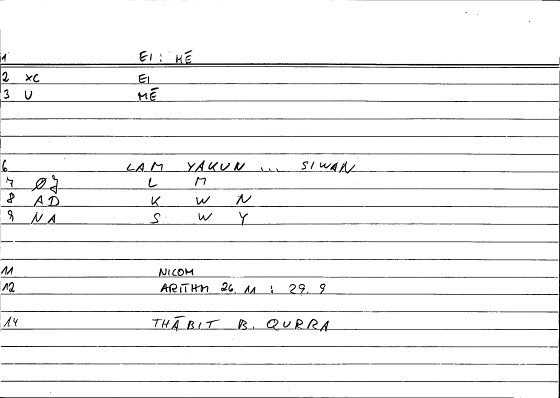 1 EI : MĒ
2 XC EI
3 U MĒ
6 LAM YAKUN ... SIWAN
7 ØJ L M
8 AD K W N
9 NA S W Y
11 NICOM
12 ARITHM 26. 11 : 29. 9
14 THĀBIT B. QURRA